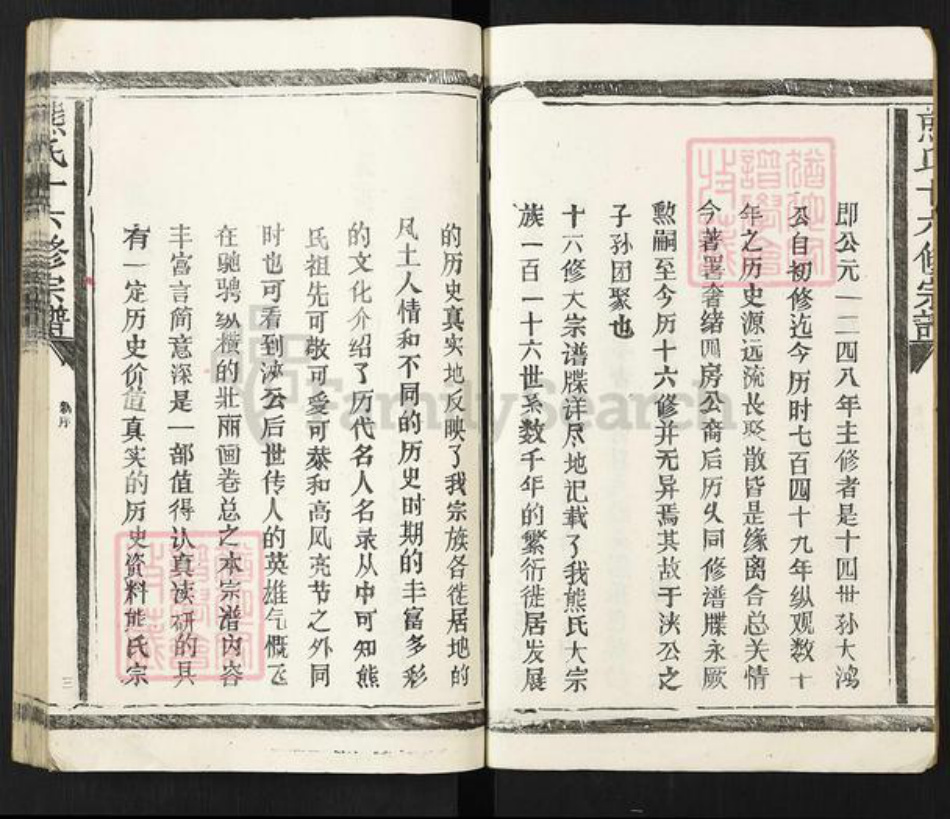 熊氏十六修宗谱
即公元一二四八年主修者是十四世孙大鸿
公自初修迄今历时七百四十九年纵观数十
年之历史源远流长聚散皆是缘离合总关情
今著畧奢绪四房公裔后历久同修谱牒永厥
勲嗣至今历十六修并无异焉其故于浃公之
子孙团聚也
十六修大宗谱牒详尽地记载了我熊氏大宗
族一百一十六世系数千年的繁衍徙居发展
的历史真实地反映了我宗族各徙居地的
风土人情和不同的历史时期的丰富多彩
的文化介绍了历代名人名录从中可知熊
氏祖先可敬可爱可恭和高风亮节之外同
时也可看到浃公后世传人的英雄气慨飞
在驰骋纵横的壮丽画卷总之本宗谱内容
丰富言简意深是一部值得认真读研的具
有一定历史价值真实的历史资料熊氏宗
熊氏十六修宗谱
序
三
FamilySearch